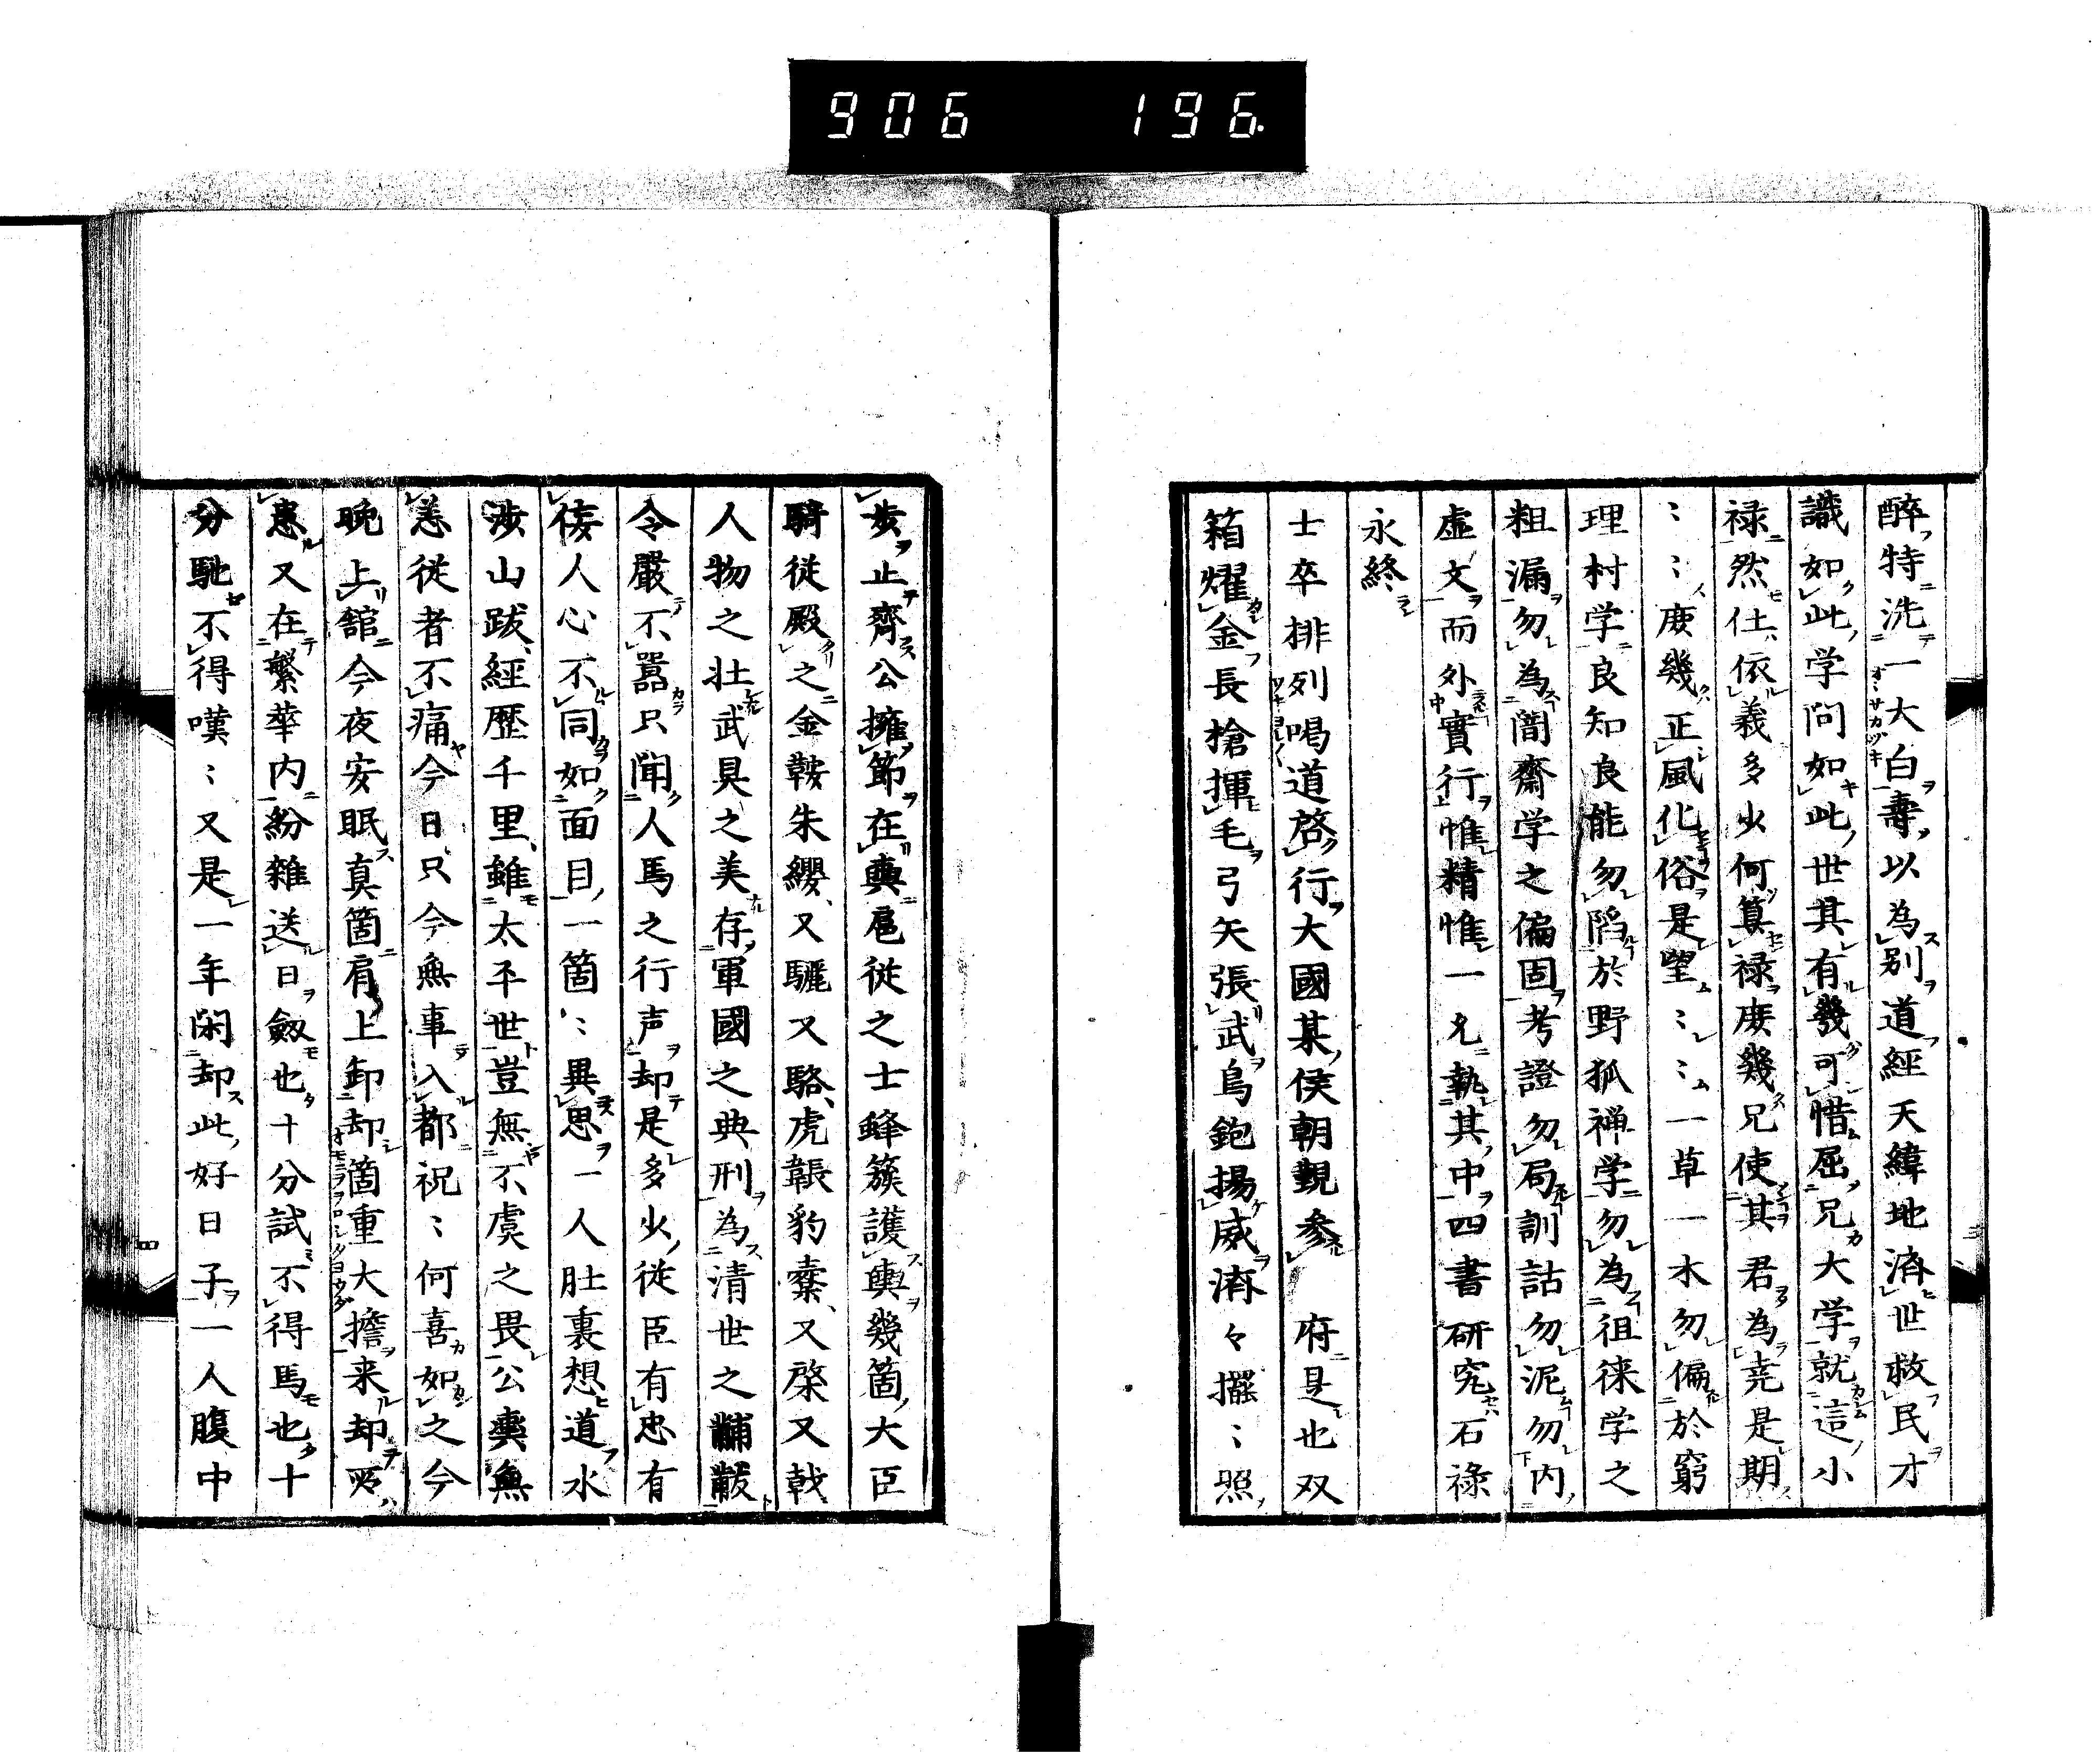 906 196.
醉特洗一大白壽以為別道經天緯地済世救民才
識如此学問如此世其有幾可惜屈兄大学就這小
禄然仕依義多少何算禄庶幾兄使其君為尭是期
〻〻庶幾正風化俗是望〻〻一草一木勿偏於窮
理村学良知良能勿陷於野狐禅学勿為徂徠学之
粗漏勿為闇齋学之偏固考證勿局訓詁勿泥勿内
虛文而外實行惟精惟一允執其中四書研究石祿
永終
士卒排列喝道啓行大國某侯朝覲参 府是也双
箱燿金長槍揮毛弓矢張武鳥銃揚威済々擺〻照
歩止齊公擁節在輿扈従之士蜂簇護輿幾箇大臣
騎従殿之金鞍朱纓又驪又駱虎韔豹櫜又棨又戟
人物之壮武具之美存軍國之典刑為清世之黼黻
令嚴不囂只聞人馬之行声却是多少従臣有忠有
侫人心不同如面目一箇〻異思一人肚裏想道水
渉山跋經歷千里雖太平世豈無不虞之畏公輿無
恙従者不痛今日只今無事入都祝〻何喜如之今
晩上舘今夜安眠真箇肩上卸却箇重大擔来却又
患又在繁華内紛雜送日劔也十分試不得馬也十
分馳不得嘆〻又是一年閑却此好日子一人腹中